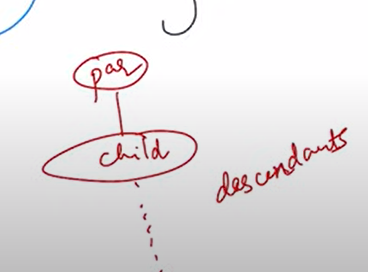 par
child
descendants